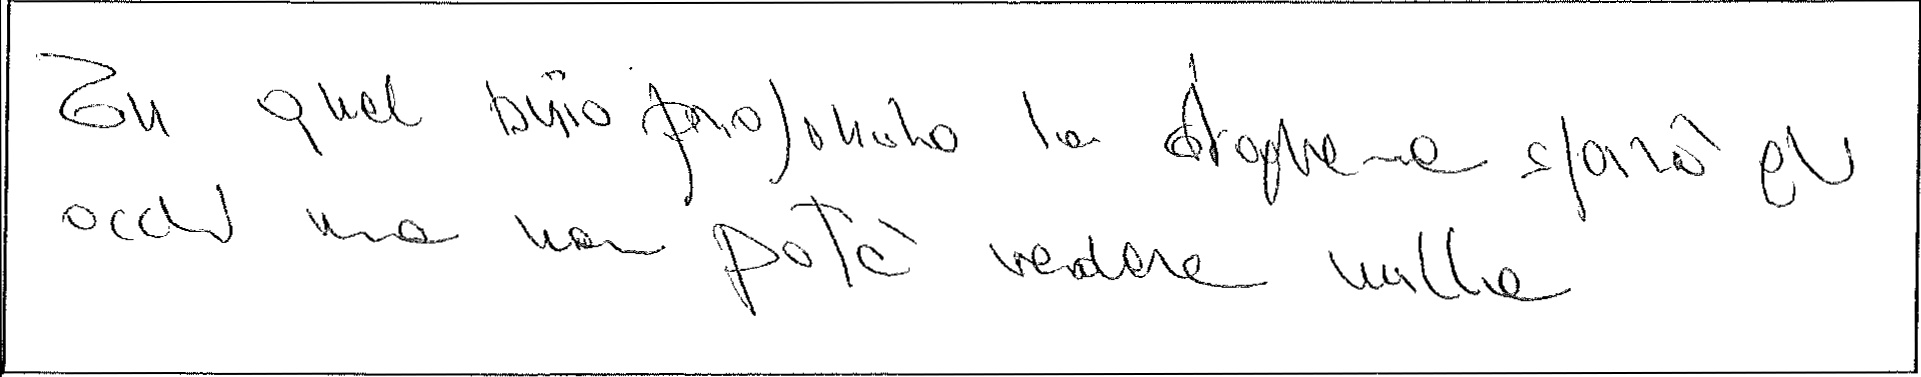 In quel buio profondo la sforzò gli
occhi ma non potè vedere nulla